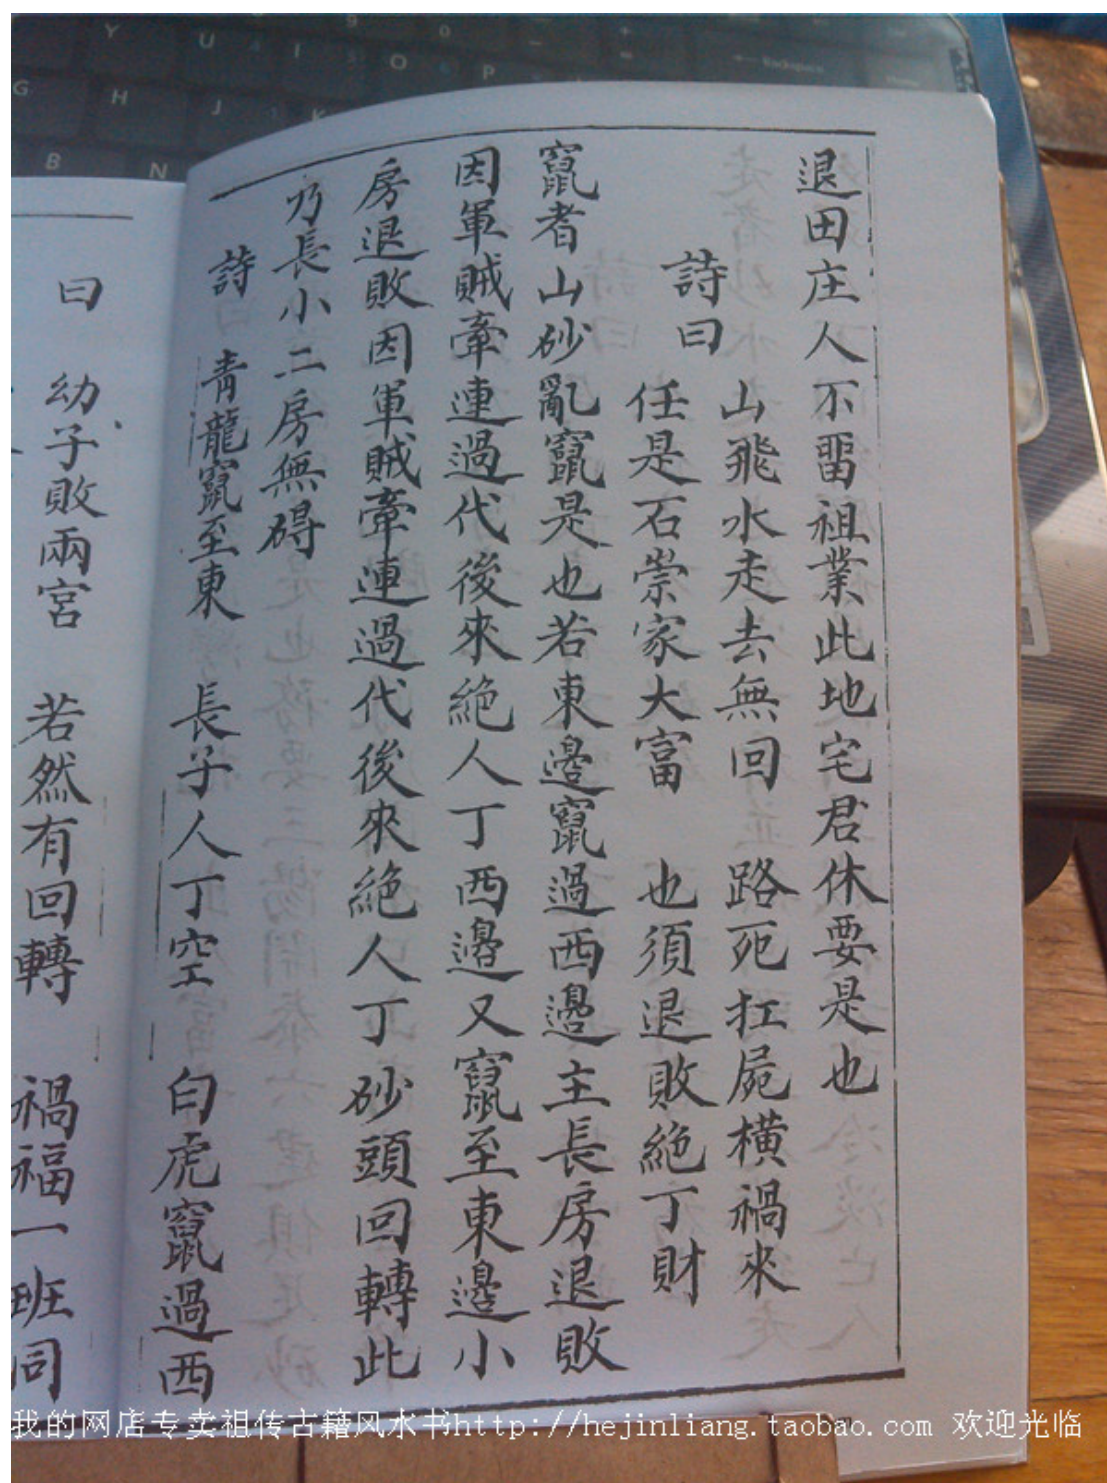 退田庄人不畱祖業此地宅君休要是也
詩曰
山飛水走去無回 路死扛屍橫禍來
任是石崇家大富 也須退敗絕丁財
竄者山砂亂竄是也若東邊竄過西邊主長房退敗
因軍賊牽連過代後來絕人丁西邊又竄至東邊小
房退敗因軍賊牽連過代後來絕人丁砂頭回轉此
乃長小二房無碍
詩 青龍竄至東 長子人丁空 白虎竄過西
曰 幼子敗兩宮 若然有回轉 禍福一班同
我的网店专卖祖传古籍风水书http://hejinliang.taobao.com 欢迎光临